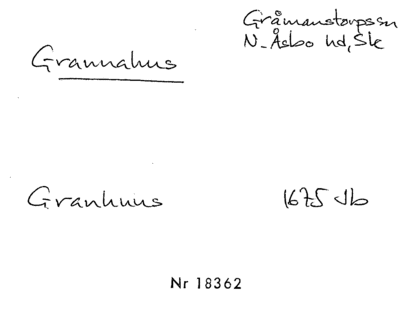 Gråmanstorpssn
N. Åsbo hd, Sk
Grannahus
Granhuus
1675 Jb
Nr 18362